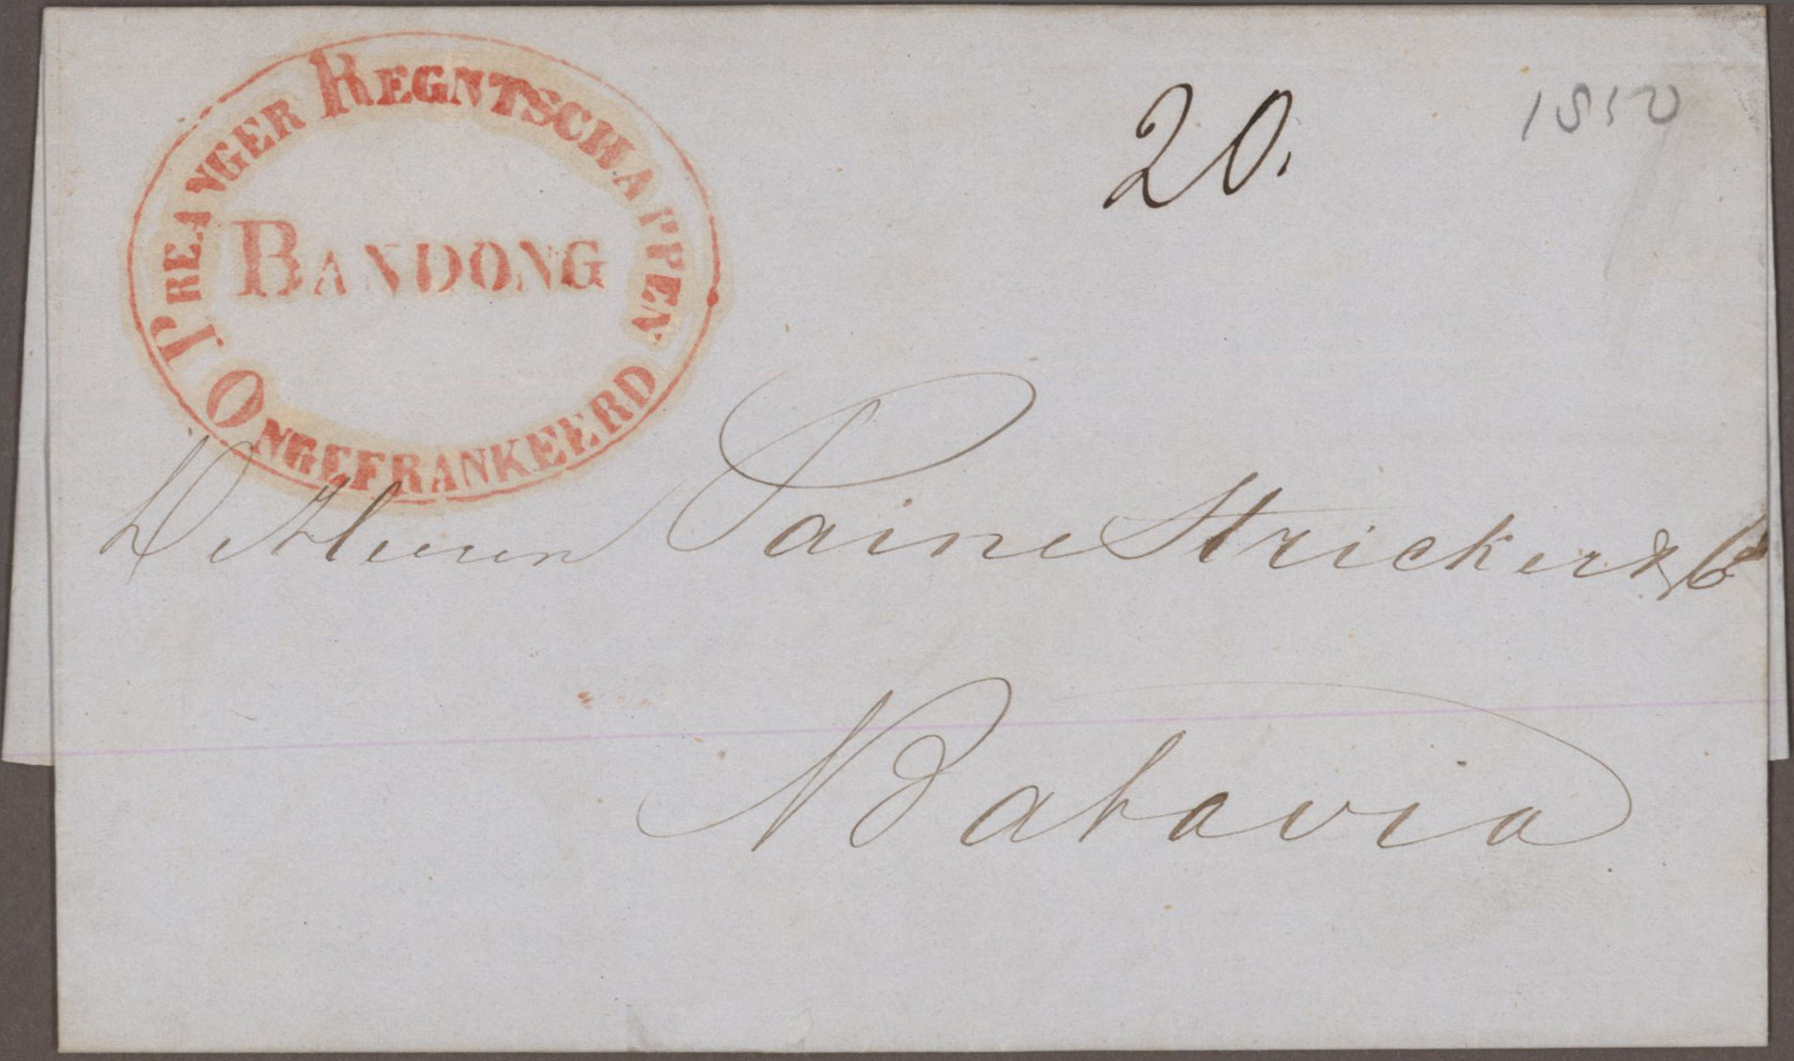 PREANGER REGNTSCHAPPEN
BANDONG
ONGEFRANKEERD
20.
1850
De Heeren Paine Stricker & Co
Batavia